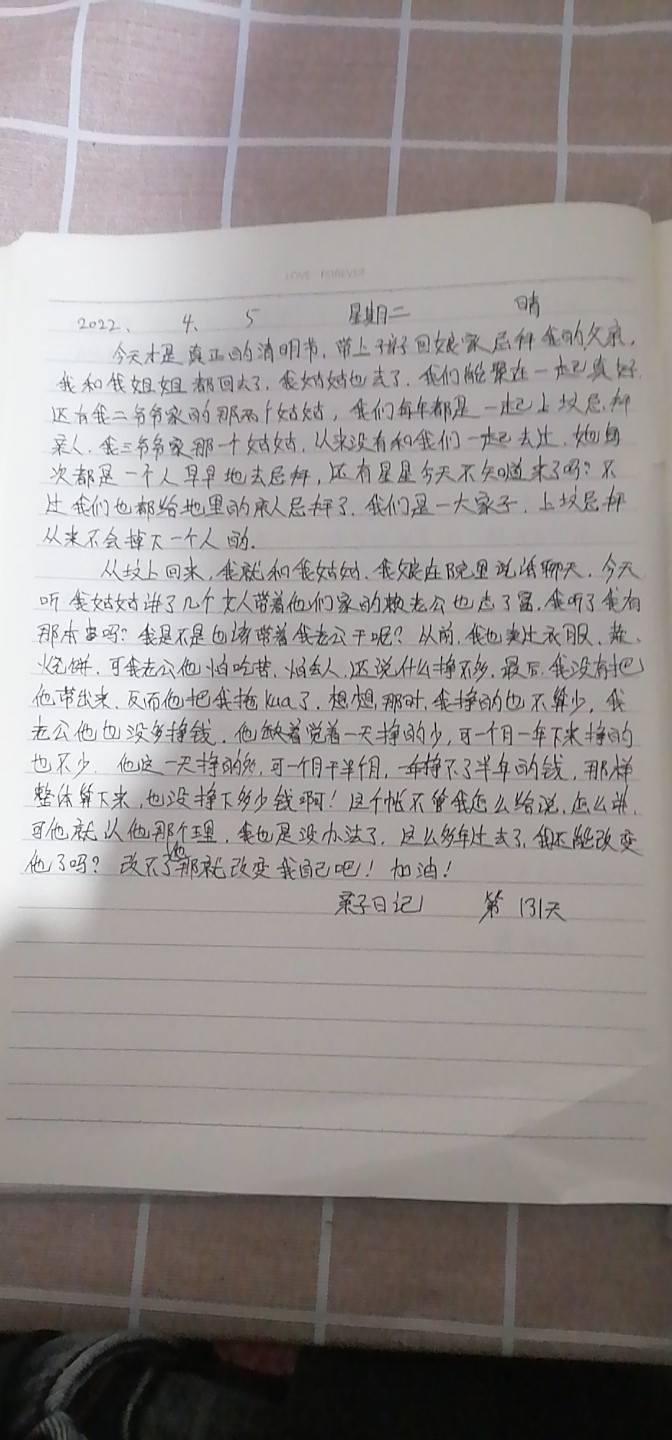 LOVE FOREVER
2022、 4、 5 星期二 晴
今天才是真正的清明节,带上孩子回娘家忌拜我的父亲,
我和我姐姐都回去了,我姑姑也去了,我们能聚在一起真好.
还有我二爷爷家的那两个姑姑,我们每年都是一起上坟忌拜
亲人,我三爷爷家那一个姑姑,从来没有和我们一起去过,她每
次都是一个人早早地去忌拜,还有星星今天不知道来了吗?不
过我们也都给地里的亲人忌拜了,我们是一大家子,上坟忌拜
从来不会掉下一个人的.
从坟上回来,我就和我姑姑、我娘在院里说话聊天,今天
听我姑姑讲了几个女人带着他们家的懒老公也志了富,我听了我有
那本事吗?我是不是也该带着我老公干呢?从前,我也卖过衣服、菜、
火烧饼,可我老公他怕吃苦、怕丢人,还说什么挣不多,最后,我没有把
他带出来,反而他把我拖kua了,想想,那时,我挣的也不算少,我
老公他也没多挣钱,他总觉着一天挣的少,可一个月一年下来挣的
也不少,他这一天挣的多,可一个月干半个月,一年挣不了半年的钱,那样
整体算下来,也没挣下多少钱啊!这个帐不管我怎么给说,怎么讲,
可他就认他那个理,我也是没办法了,这么多年过去了,我还能改变
他了吗?改不了他那就改变我自己吧!加油!
栗子日记 第131天